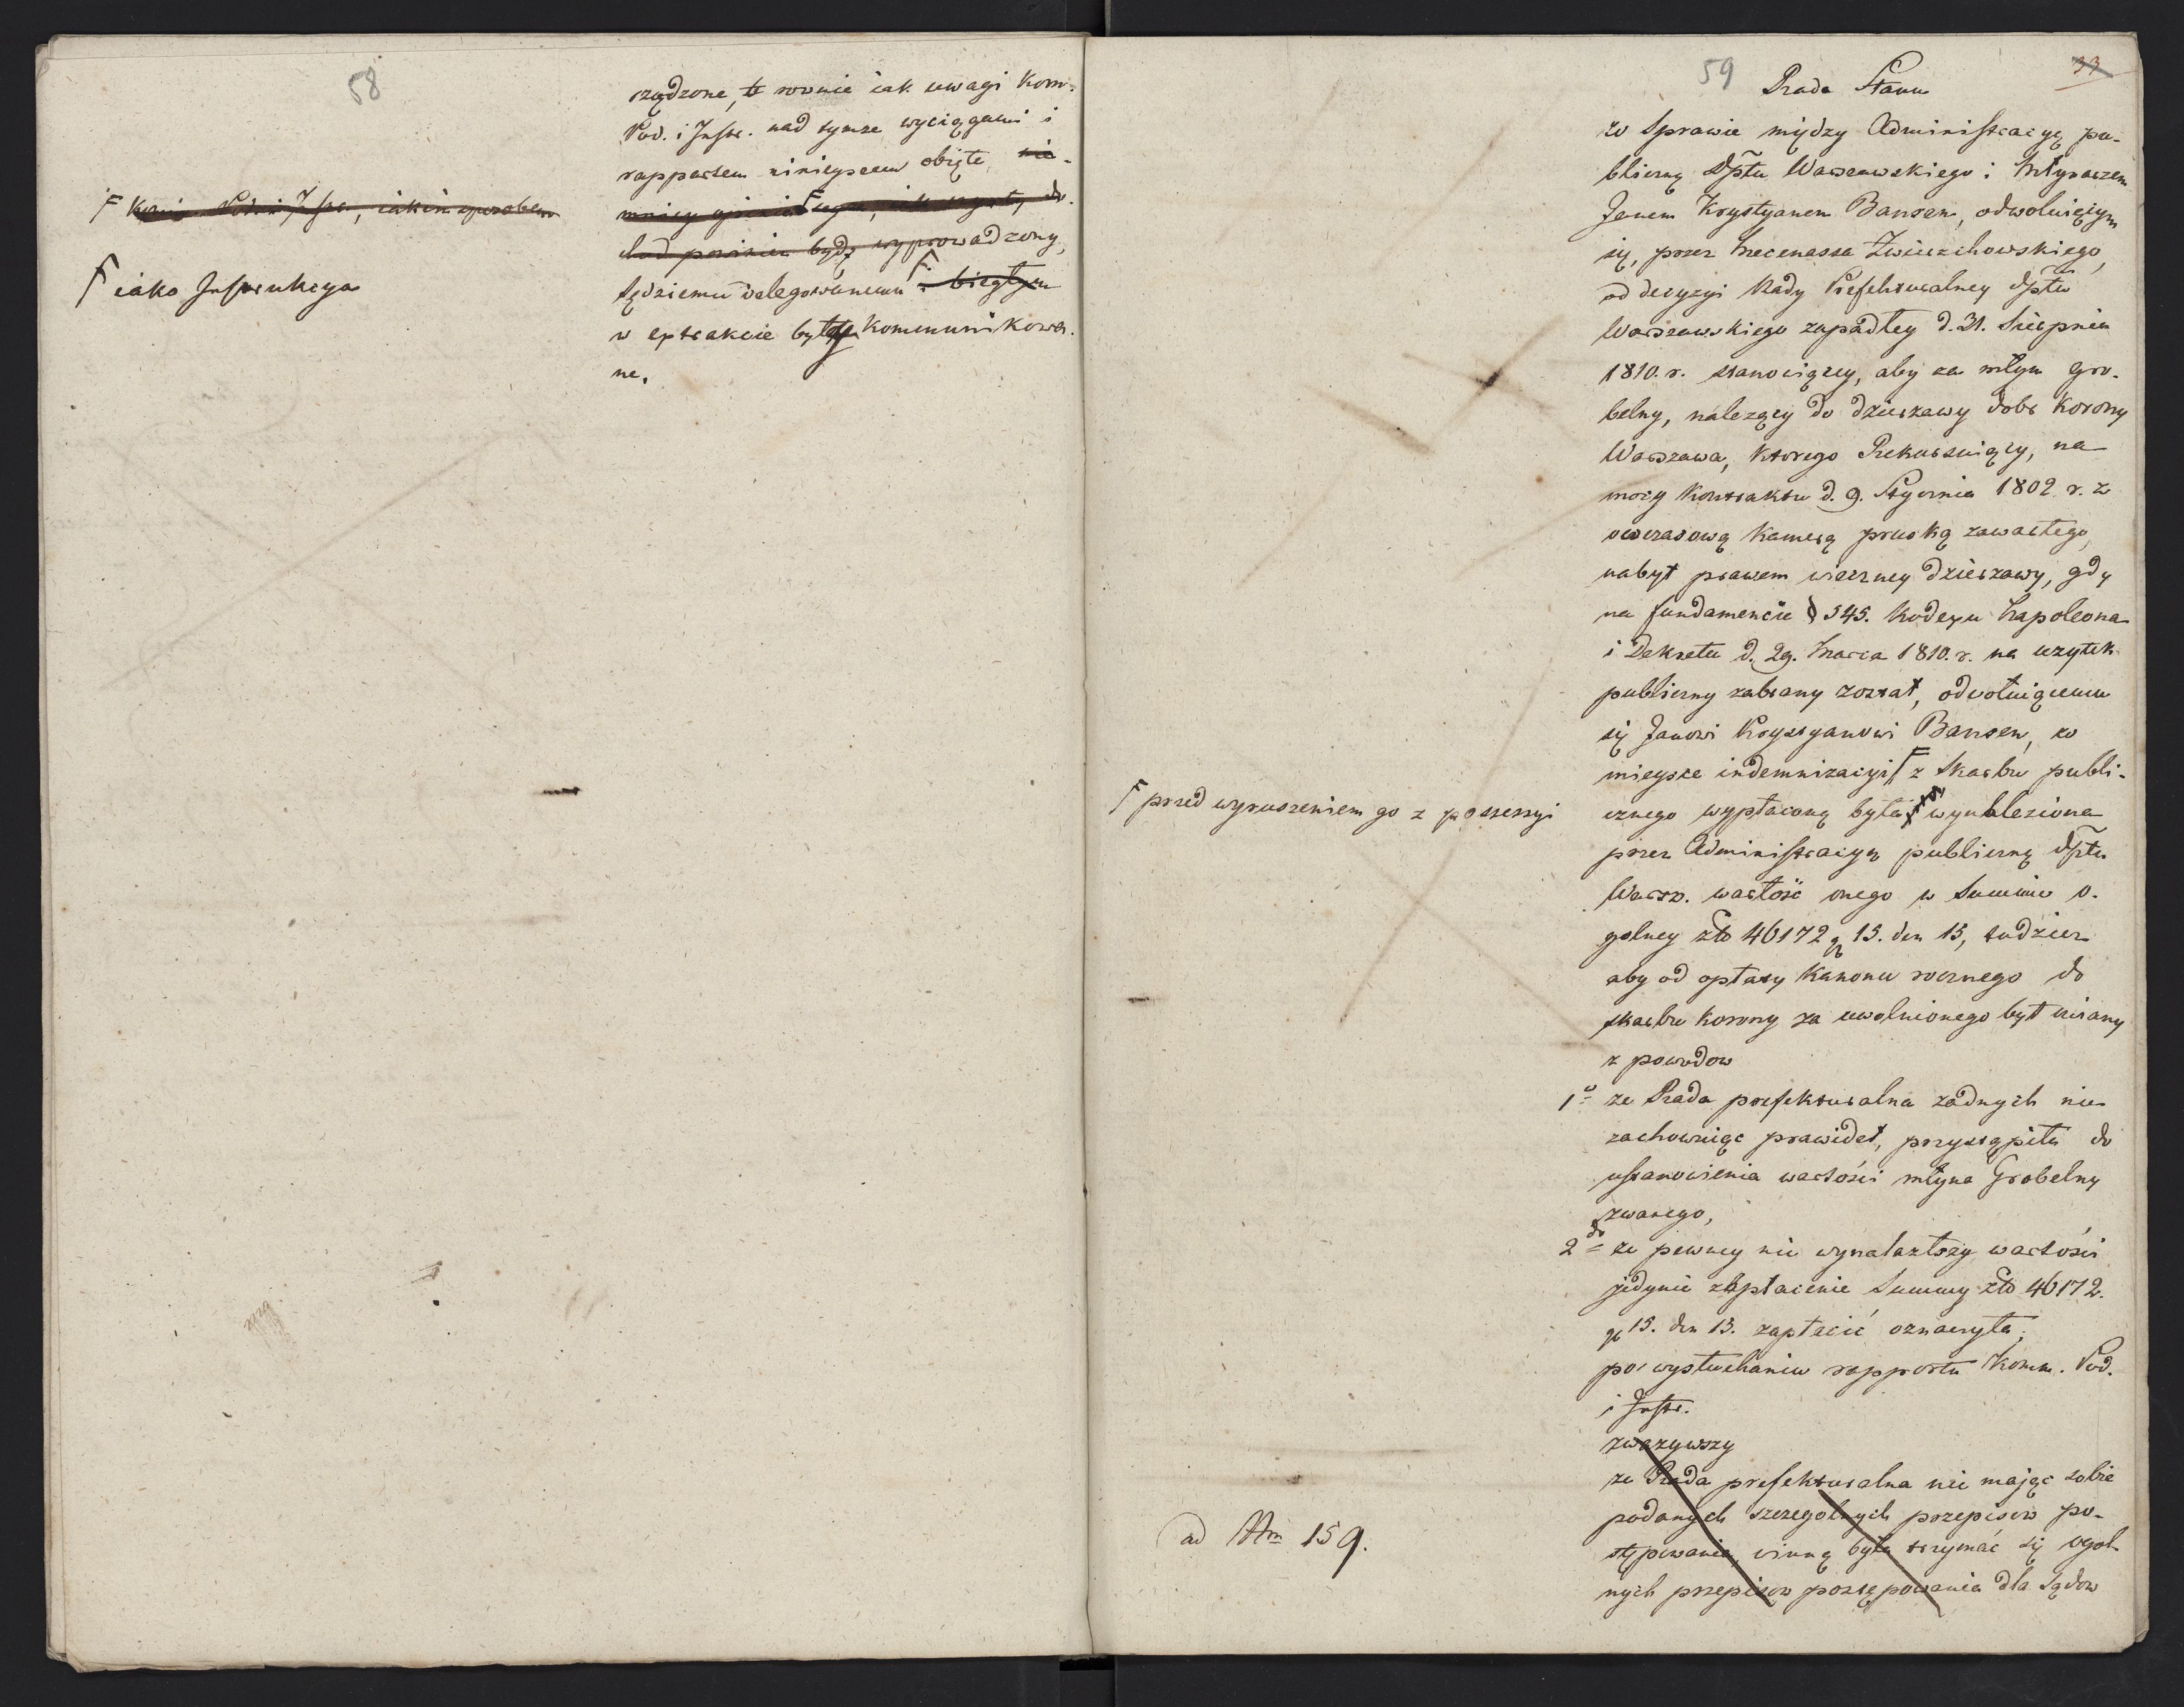 58
rządzone, te rownie iak uwagi Kom.
Pod. i Instr. nad tymze wyciągami i
rapportem ninieyszem obięte, nie-
mniey
dod powinien bydź wyprowadzony,
Sędziemu delegowanemu F. biegłym
w extrakcie były kommunikowa-
ne.
F Komis. Podań i Instr., iakim sposobem
F iako Instrukcya
59
33
Rada Stanu
w Sprawie między Administracyą pu-
bliczną Dptu Warszawskiego i Młynarzem
Janem Krystyanem Bansen, odwołuiącym
się, przez Mecenassa Zwierzchowskiego,
od decyzyi Rady Prefekturalney Dptu
Warszawskiego zapadłey d. 31. Sierpnia
1810. r. stanowiący, aby za młyn gro-
belny, należący do dzierzawy dobr Korony
Warszawa, ktorego Rekurruiący, na
mocy Kontraktu d. 9. Stycznia 1802 r. z
owczasową Kamerą pruską zawartego,
nabył prawem wieczney dzierzawy, gdy
na fundamencie § 545. Kodexu Napoleona
i Dekretu d. 29. Marca 1810. r. na uzytek
publiczny zabrany został, odwołuiącemu
się Janowi Krystyanowi Bansen, w
mieysce indemnizacyi F z Skarbu publi-
cznego wypłaconą była wynaleziona
przez Administracyą publiczną dptu
Warsz. wartość onego w Summie o-
golney złt 46172 gr 15. den 13, tudziez
aby od opłaty Kanonu rocznego do
skarbu Korony za uwolnionego był miany
z powodow
F przed wyruszeniem go z possessyi
1o ze Rada prefekturalna zadnych nie
zachowuiąc prawideł, przystąpiła do
ustanowienia wartości młyna Grobelny
zwanego,
2do ze pewney nie wynalazłszy wartości
jedynie zapłacenie Summy złt 46172.
gr 15. den 13. zapłacić oznaczyła;
po wysłuchaniu rapportu Komm. Pod.
i Instr.
zwazywszy
ze Rada prefekturalna nie mając sobie
podanych szczegolnych przepisow po-
stępowania, winną była trzymać się ogol-
nych przepisow postępowania dla Sądow
ad Nm 159.